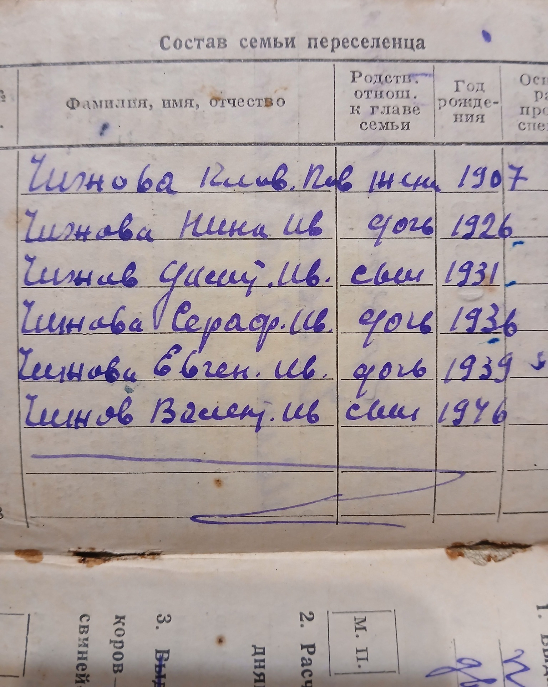 Состав семьи переселенца
Фамилия, имя, отчество
Родств. отнош. к главе семьи
Год рождения
Чижнова Клав. Пав жена 1907
Чижнова Нина Ив дочь 1926
Чижнов Ив. сын 1931
Чижнова Сераф. Ив. дочь 1936
Чижнова Евген. Ив. дочь 1939
Чижнов Валент. Ив сын 1946
М. П.
2. Рас
дня
3.
коров
свиней
1.